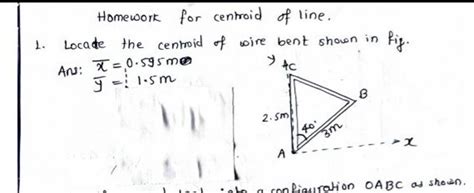 Homework for centroid of line.
1. Locade the centroid of wire bent shown in fig.
Ans: x = 0.595m
y = 1.5m
y
C
B
2.5m
40°
3m
A
x
configuration OABC as shown.